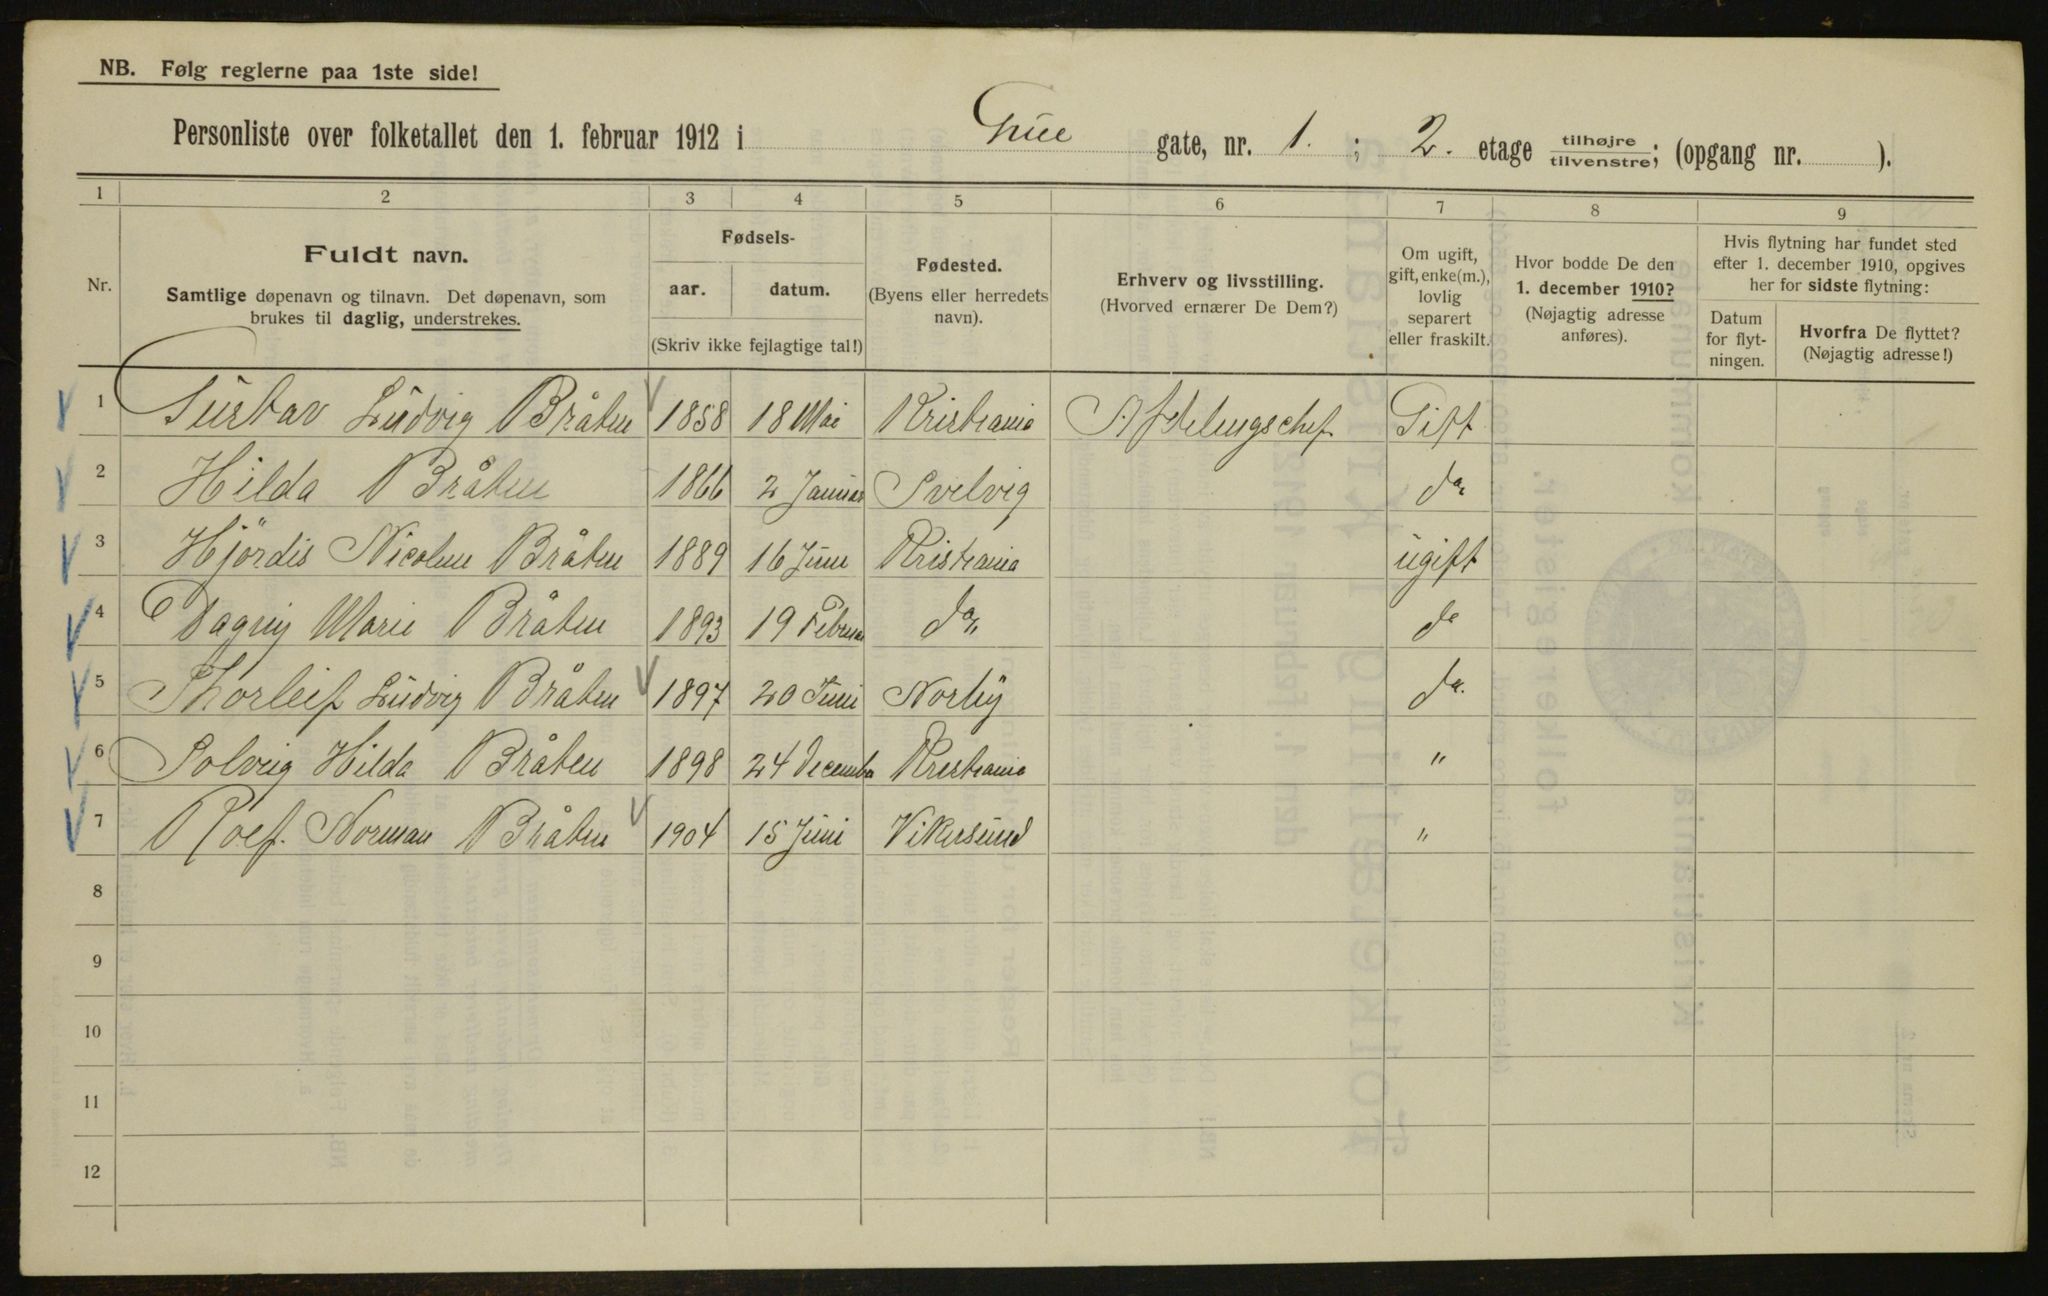 NB. Følg reglerne paa 1ste side!
Personliste over folketallet den 1. februar 1912 i Grüe gate, nr. 1. ; 2. etage tilhøjre tilvenstre; (opgang nr. ).
1 2 3 4 5 6 7 8 9
Nr.
Fuldt navn.
Samtlige døpenavn og tilnavn. Det døpenavn, som
brukes til daglig, understrekes.
Fødsels-
aar. datum.
(Skriv ikke fejlagtige tal!)
Fødested.
(Byens eller herredets
navn).
Erhverv og livsstilling.
(Hvorved ernærer De Dem?)
Om ugift,
gift, enke(m.),
lovlig
separert
eller fraskilt.
Hvor bodde De den
1. december 1910?
(Nøjagtig adresse
anføres).
Hvis flytning har fundet sted
efter 1. december 1910, opgives
her for sidste flytning:
Datum
for flyt-
ningen.
Hvorfra De flyttet?
(Nøjagtig adresse!)
1 Gustav Ludvig Bråten 1858 18 Mai Kristiania Afdelingschef Gift
2 Hilda Bråten 1866 2 Januar Svelvig do
3 Hjördis Nicoline Bråten 1889 16 Juni Kristiania ugift
4 Dagny Marie Bråten 1893 19 Februar do do
5 Thorleif Ludvig Bråten 1897 20 Juni Norby do.
6 Solveig Hilda Bråten 1898 24 December Kristiania "
7 Roef. Norman Bråten 1904 15 Juni Vikersund "
8
9
10
11
12